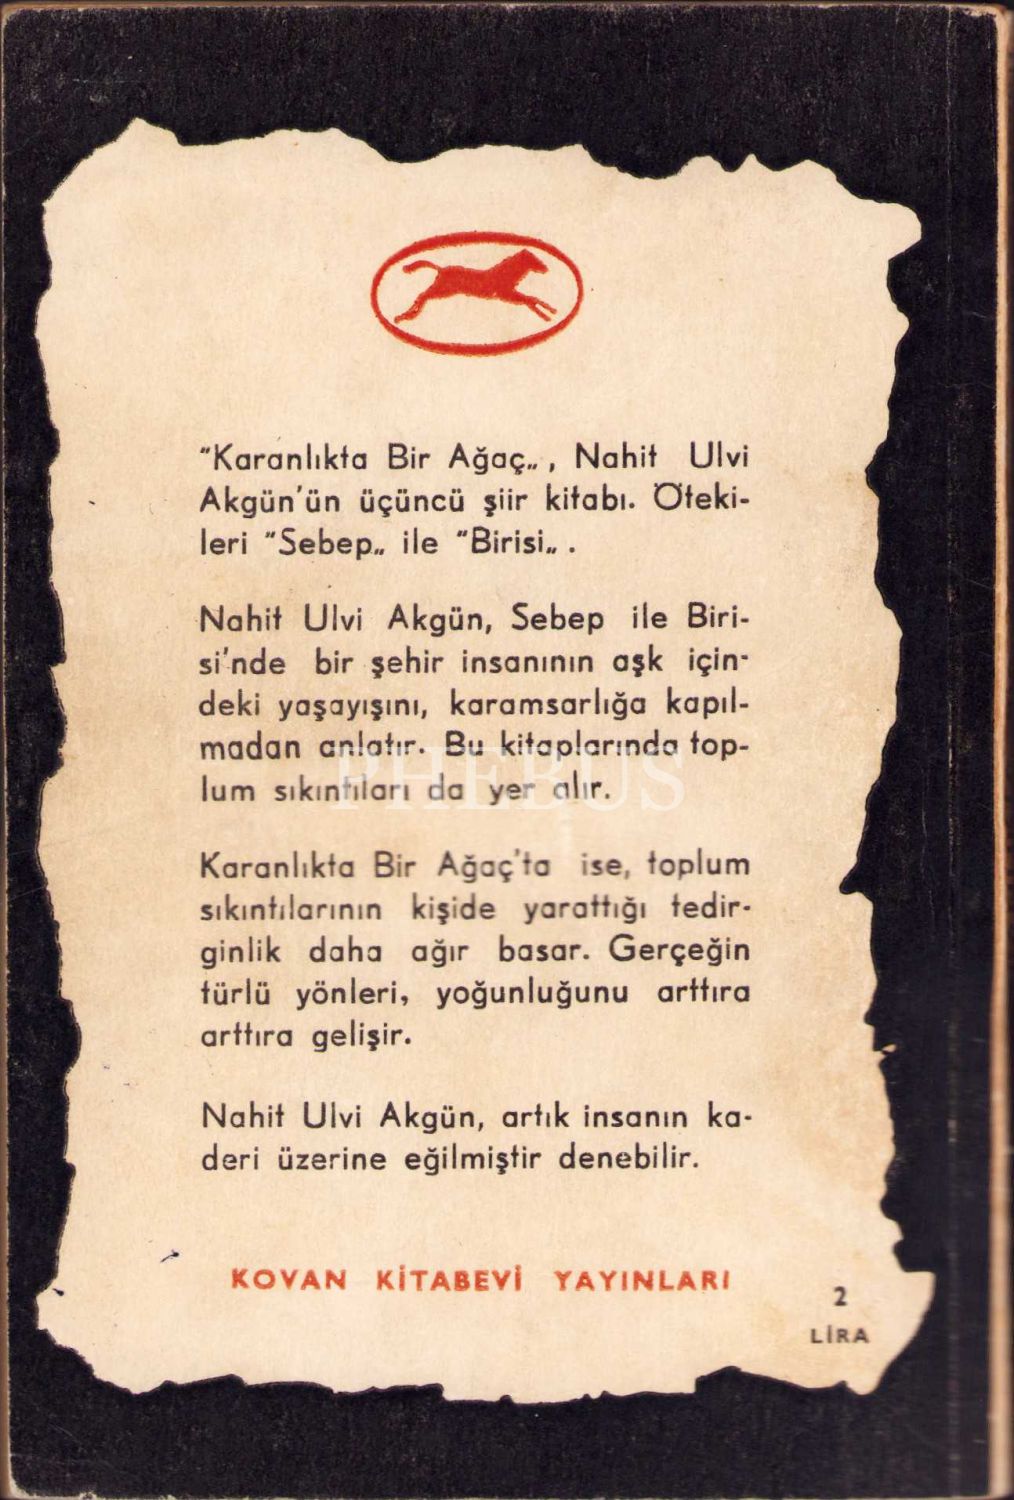 "Karanlıkta Bir Ağaç„ , Nahit Ulvi
Akgün'ün üçüncü şiir kitabı. Öteki-
leri "Sebep„ ile "Birisi„ .
Nahit Ulvi Akgün, Sebep ile Biri-
si'nde bir şehir insanının aşk için-
deki yaşayışını, karamsarlığa kapıl-
madan anlatır. Bu kitaplarında top-
lum sıkıntıları da yer alır.
PHEBUS
Karanlıkta Bir Ağaç'ta ise, toplum
sıkıntılarının kişide yarattığı tedir-
ginlik daha ağır basar. Gerçeğin
türlü yönleri, yoğunluğunu arttıra
arttıra gelişir.
Nahit Ulvi Akgün, artık insanın ka-
deri üzerine eğilmiştir denebilir.
KOVAN KİTABEVİ YAYINLARI
2
LİRA